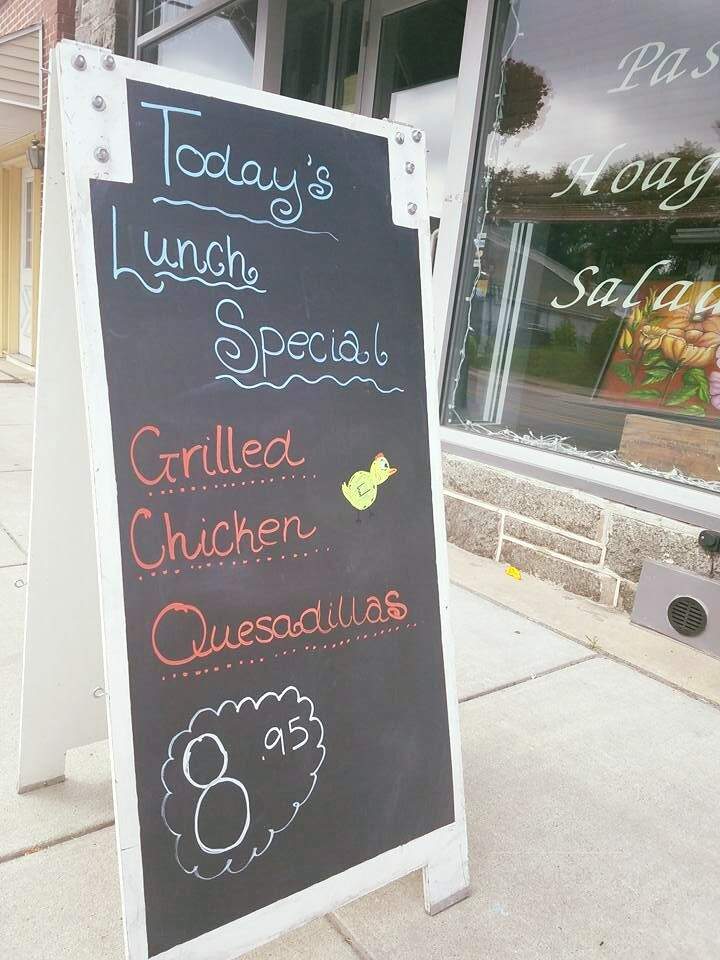 Today's
Lunch
Special
Grilled
Chicken
Quesadillas
8.95
Pas
Hoag
Salad